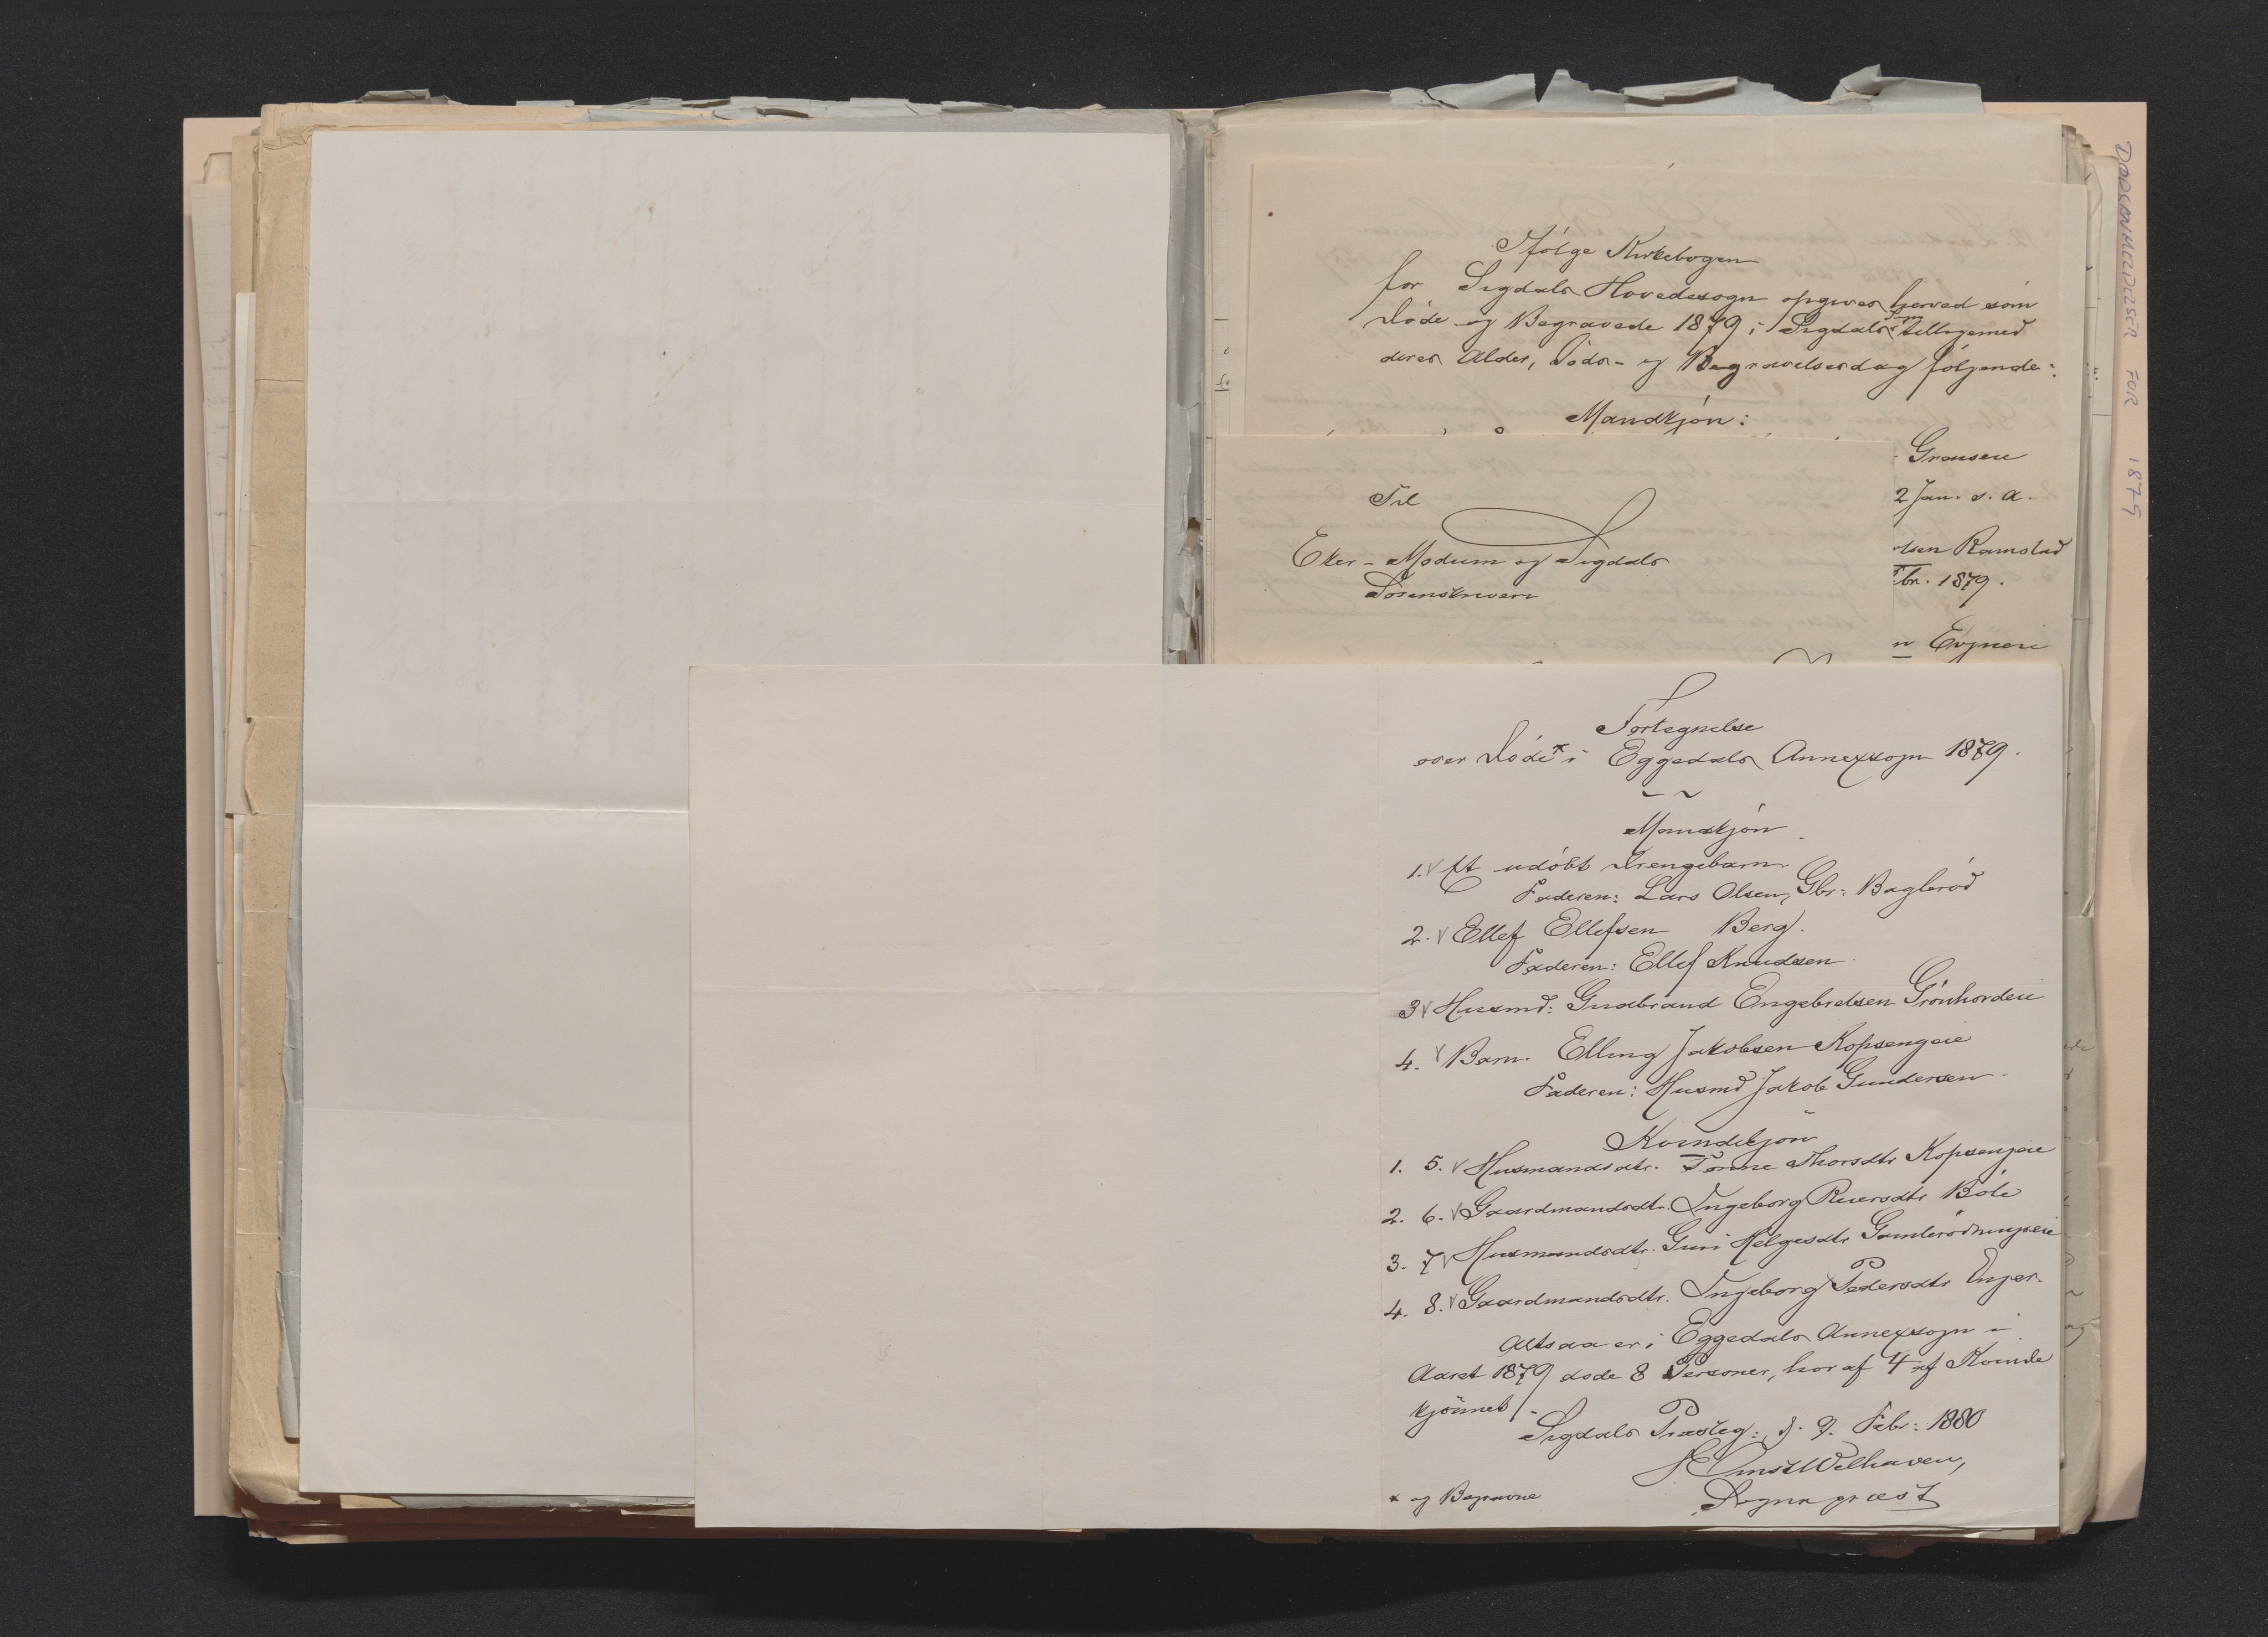 Ifölge Kirkebogen
for Sigdals Hovedsogn opgives herved som
Döde og Begravede 1879 i Sigdals Sogn tilligemed
deres Alder, Döds- og Begravelsesdag fölgende:
Mandkjön:
Gransen
2 Jan. s. a.
lsen Ramstad
br. 1879.
n Evjueneie
Til
Eker-Modum og Sigdals
Sorenskriveri
Fortegnelse
over Döde* i Eggedals Annexsogn 1879.
Mandkjön
1. Et udöbt Drengebarn
Faderen: Lars Olsen, Gbr: Bagleröd
2. Ellef Ellefsen Berg.
Faderen: Ellef Knudsen
3 Husmd: Gudbrand Engebretsen Grönhordeie
4. Barn. Elling Jakobsen Kopsengeie
Faderen: Husmd Jakob Gundersen
Kvindekjön
1. 5. Husmandsdtr. Tonne Thorsdtr Kopsengeie
2. 6. Gaardmandsdtr. Ingeborg Reiersdtr Böle
3. 7 Husmandsdtr. Guri Helgesdtr
4. 8. Gaardmandsdtr. Ingeborg Pedersdtr Enger.
Altsaa er i Eggedals Annexsogn i
Aaret 1879 döde 8 Personer, hvoraf 4 af Kvinde
kjönnet.
Sigdals Præsteg: d. 9. Febr: 1880
Ernst Welhaven,
Sogneprest
* og Begravne
DØDSANMELDELSER FOR 1879